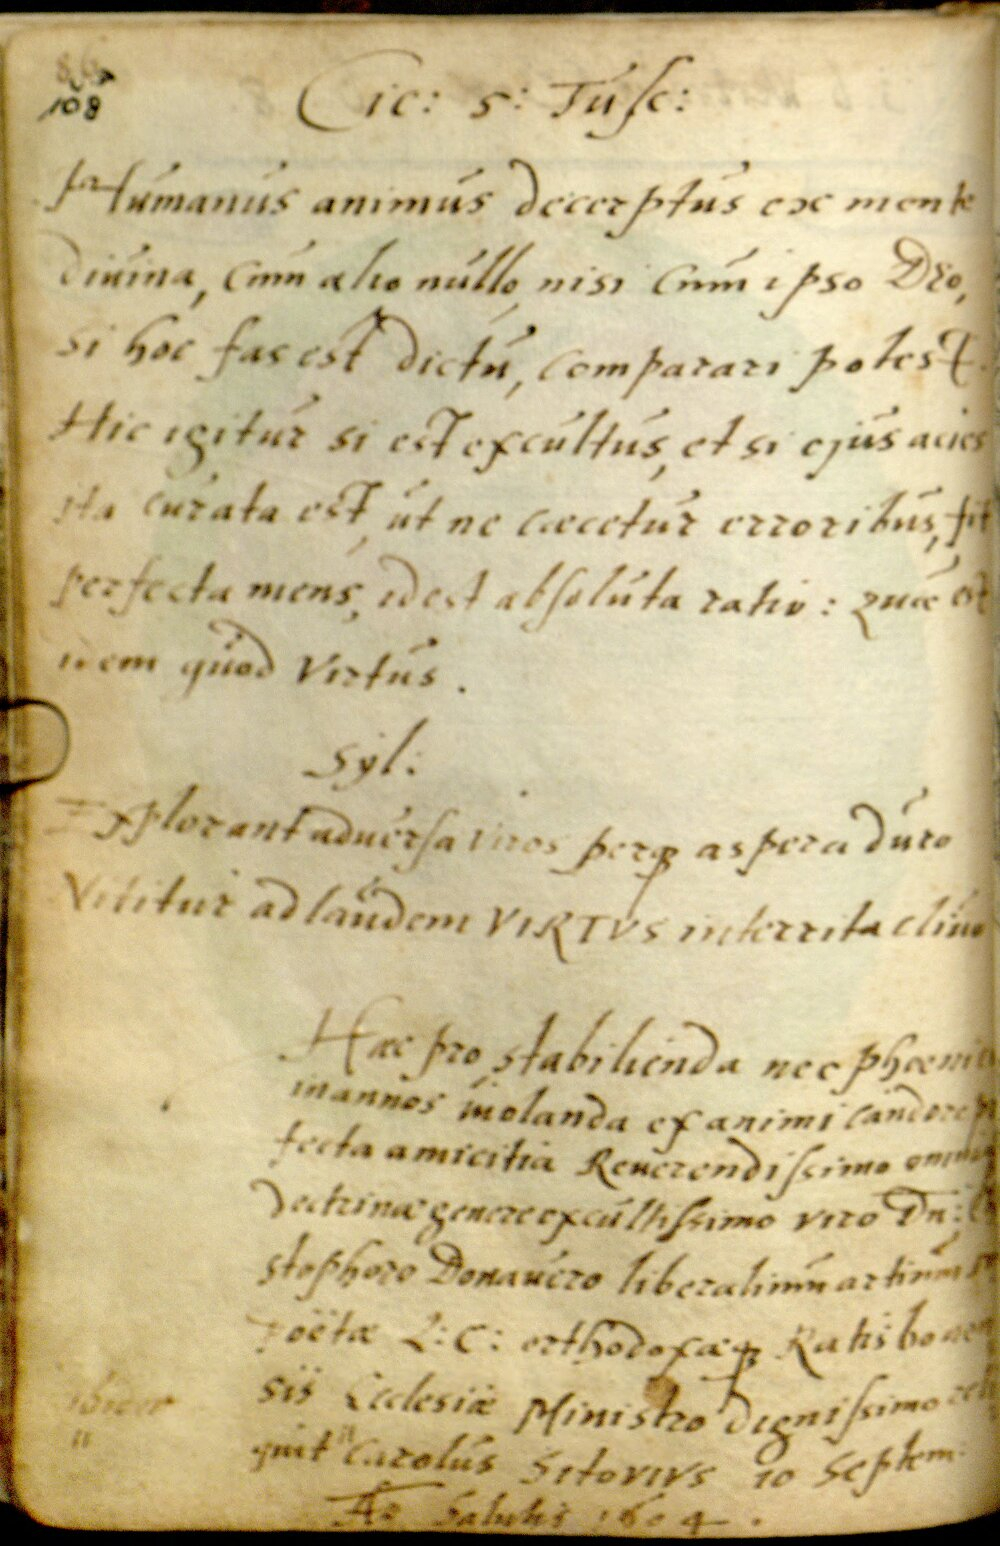 108
Cic: 5: Tusc:
Humanus animus decerptus ex mente
divina, cum alio nullo, nisi cum ipso Deo,
si hoc fas est dictu, comparari potest.
Hic igitur si est excultus, et si ejus acies
ita curata est, ut ne caecetur erroribus, fit
perfecta mens, id est absoluta ratio: quae est
idem quod Virtus.
Syl:
Explorant adversa viros perq aspera duro
Nititur ad laudem VIRTVS interrita clivo
Haec pro stabilienda nec phoenic
in annos violanda ex animi candore p
fecta amicitia Reverendissimo omni
doctrinae genere excultissimo viro Dn:
stophoro Donavero liberalium artium
Poëtae L: C: orthodoxaeq Ratisbonen
sis Ecclesiae Ministro dignissimo
quit Carolus Sitovivs 10 Septem:
Ao Salutis 1604.